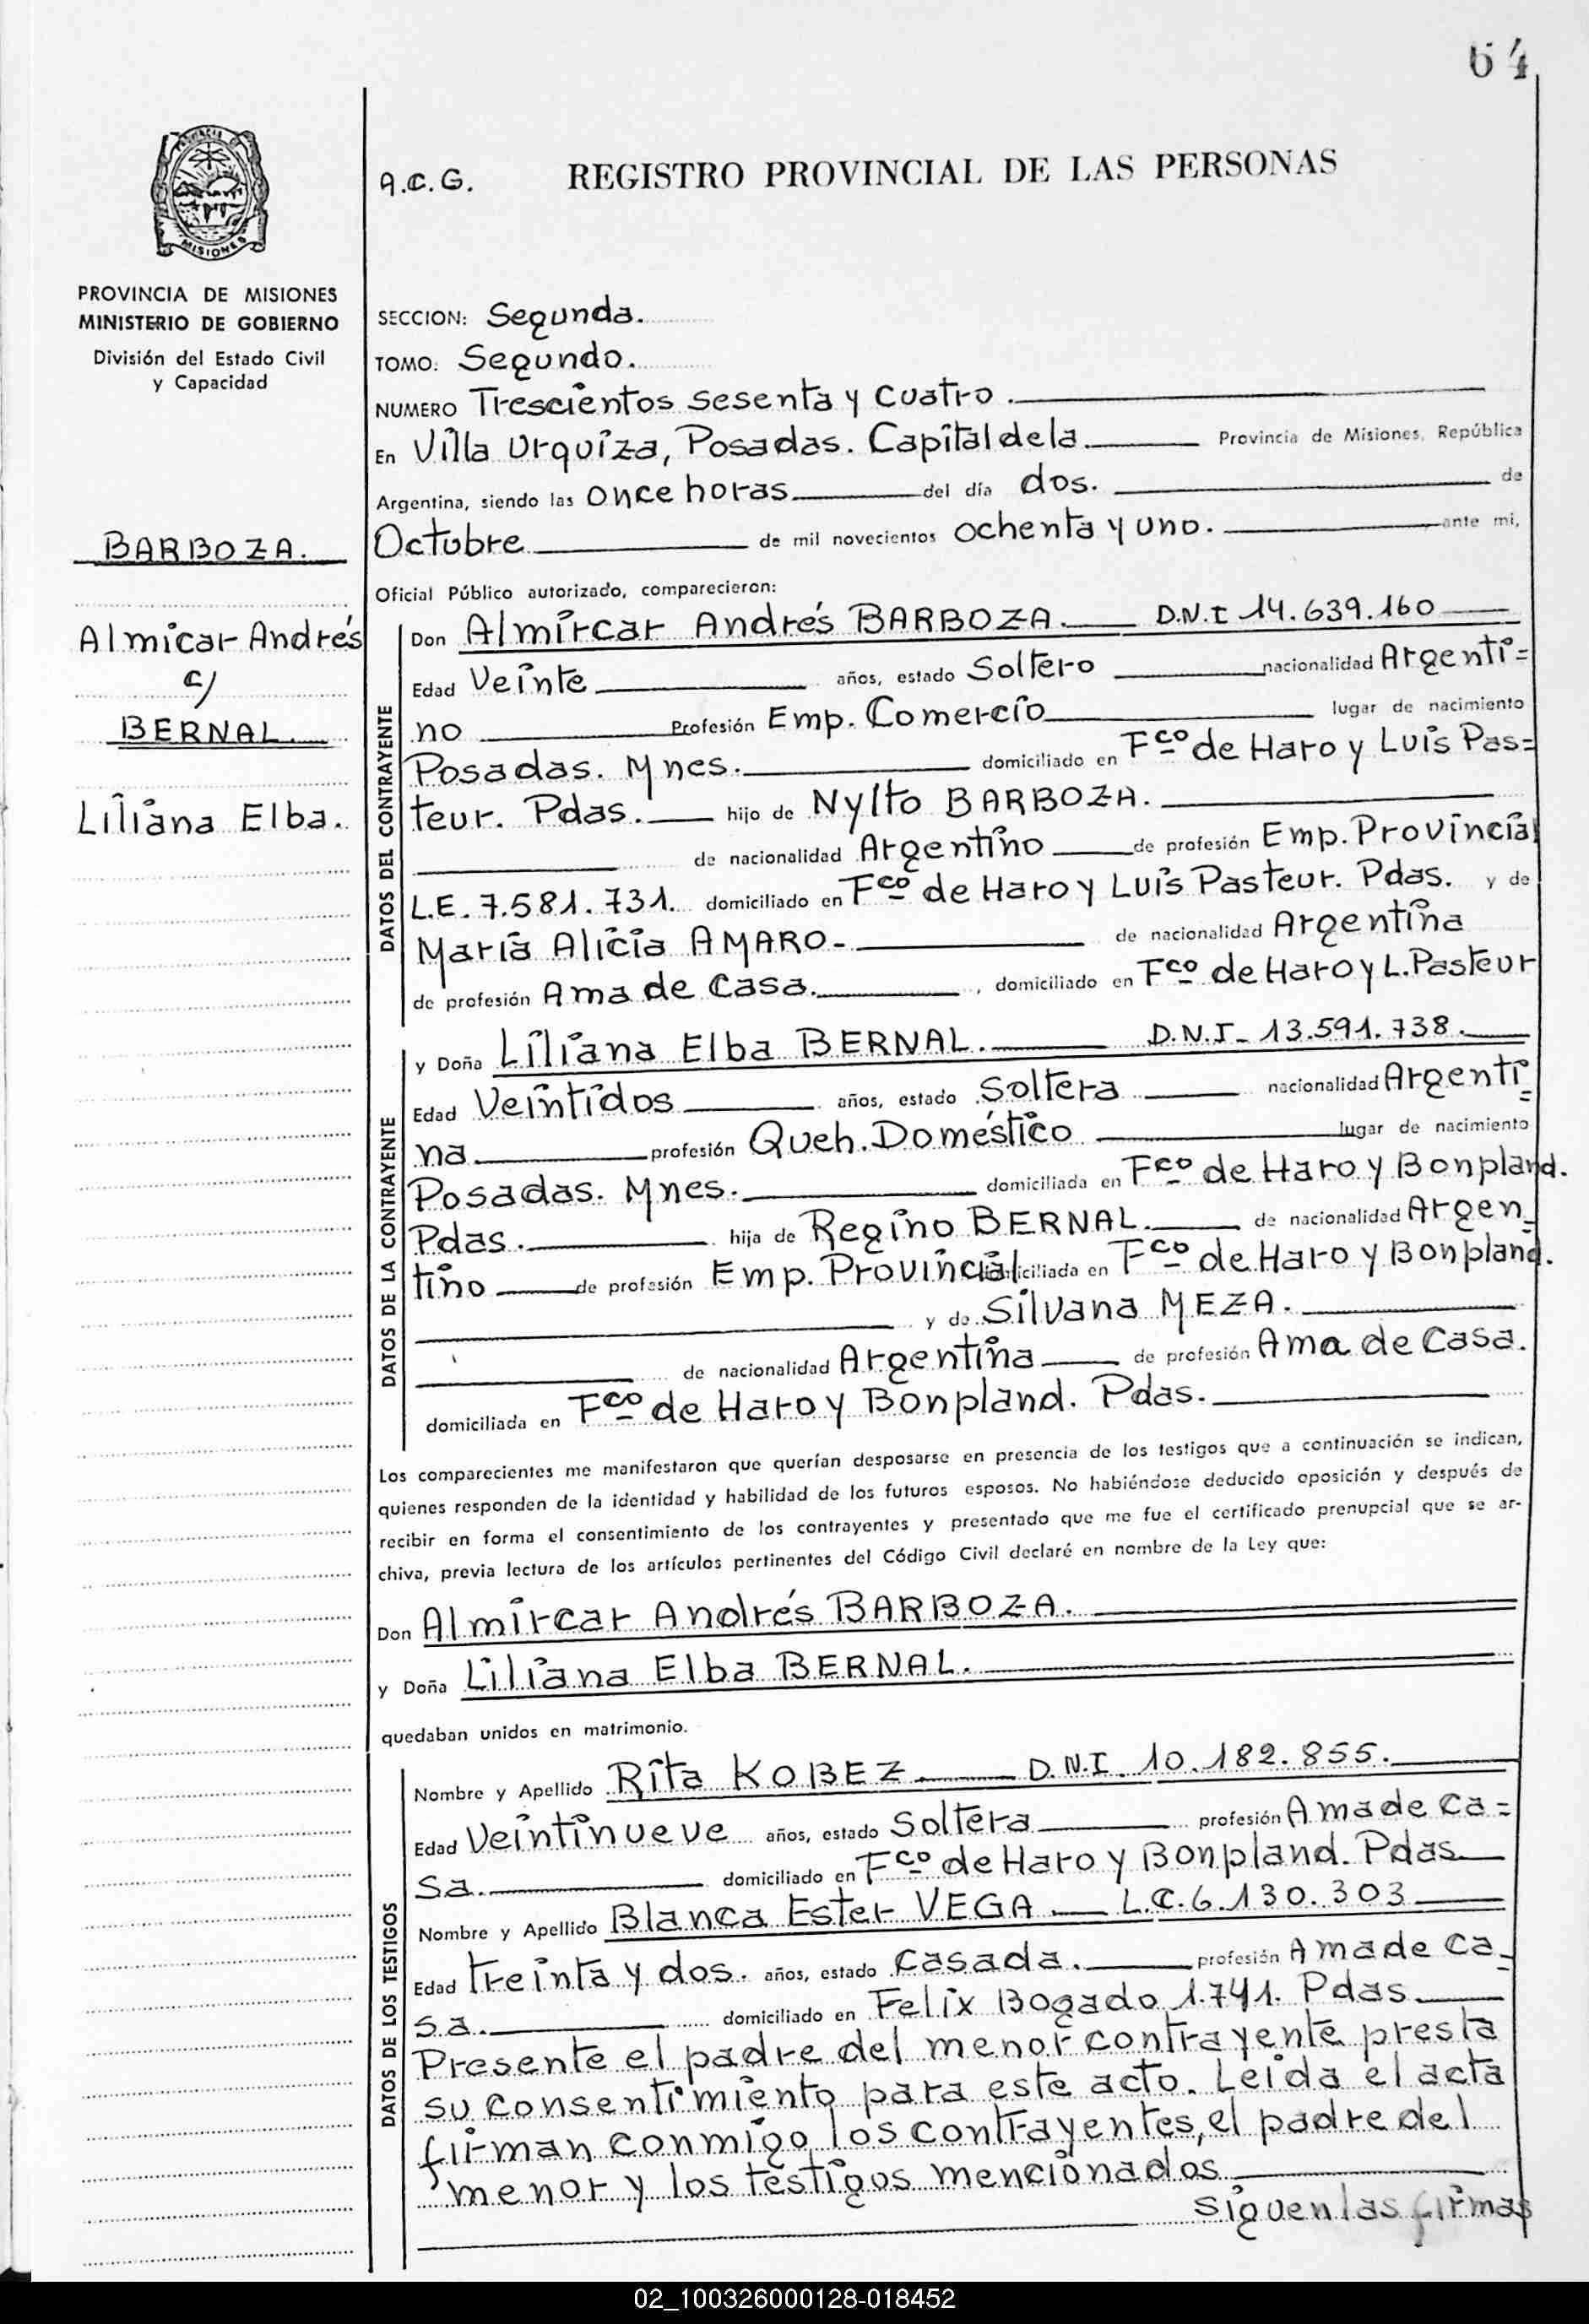 64
PROVINCIA
MISIONES
PROVINCIA DE MISIONES
MINISTERIO DE GOBIERNO
División del Estado Civil
y Capacidad
BARBOZA.
Almicar Andrés
c/
BERNAL.
Liliana Elba.
A.C.G. REGISTRO PROVINCIAL DE LAS PERSONAS
SECCION: Segunda.
TOMO: Segundo.
NUMERO Trescientos sesenta y cuatro.
En Villa Urquiza, Posadas. Capital de la. Provincia de Misiones, República
Argentina, siendo las once horas del día dos. de
Octubre de mil novecientos ochenta y uno. ante mi,
Oficial Público autorizado, comparecieron:
DATOS DEL CONTRAYENTE
Don Almircar Andrés BARBOZA. D.N.I 14.639.160
Edad Veinte años, estado Soltero nacionalidad Argenti=
no Profesión Emp. Comercio lugar de nacimiento
Posadas. Mnes. domiciliado en Fco de Haro y Luis Pas=
teur. Pdas. hijo de Nylto BARBOZA.
de nacionalidad Argentino de profesión Emp. Provincial
L.E. 7.581.731. domiciliado en Fco de Haro y Luis Pasteur. Pdas. y de
María Alicia AMARO- de nacionalidad Argentina
de profesión Ama de Casa. , domiciliado en Fco de Haro y L. Pasteur
DATOS DE LA CONTRAYENTE
y Doña Liliana Elba BERNAL. D.N.I- 13.591.738.
Edad Veintidos años, estado Soltera nacionalidad Argenti=
na. profesión Queh. Doméstico lugar de nacimiento
Posadas. Mnes. domiciliada en Fco de Haro y Bonpland.
Pdas. hija de Regino BERNAL. de nacionalidad Argen=
tino de profesión Emp. Provincial domiciliada en Fco de Haro y Bonpland.
y de Silvana MEZA.
de nacionalidad Argentina de profesión Ama de Casa.
domiciliada en Fco de Haro y Bonpland. Pdas.
Los comparecientes me manifestaron que querían desposarse en presencia de los testigos que a continuación se indican,
quienes responden de la identidad y habilidad de los futuros esposos. No habiéndose deducido oposición y después de
recibir en forma el consentimiento de los contrayentes y presentado que me fue el certificado prenupcial que se ar-
chiva, previa lectura de los artículos pertinentes del Código Civil declaré en nombre de la Ley que:
Don Almircar Andrés BARBOZA.
y Doña Liliana Elba BERNAL.
quedaban unidos en matrimonio.
DATOS DE LOS TESTIGOS
Nombre y Apellido Rita KOBEZ D.N.I. 10.182.855.
Edad Veintinueve años, estado Soltera profesión Ama de Ca=
sa. domiciliado en Fco de Haro y Bonpland. Pdas
Nombre y Apellido Blanca Ester VEGA L.C. 6.130.303
Edad treinta y dos. años, estado Casada. profesión Ama de Ca-
sa. domiciliado en Felix Bogado 1.741. Pdas
Presente el padre del menor contrayente presta
su consentimiento para este acto. Leida el acta
firman conmigo los contrayentes, el padre del
menor y los testigos mencionados
siguen las firmas
02_100326000128-018452